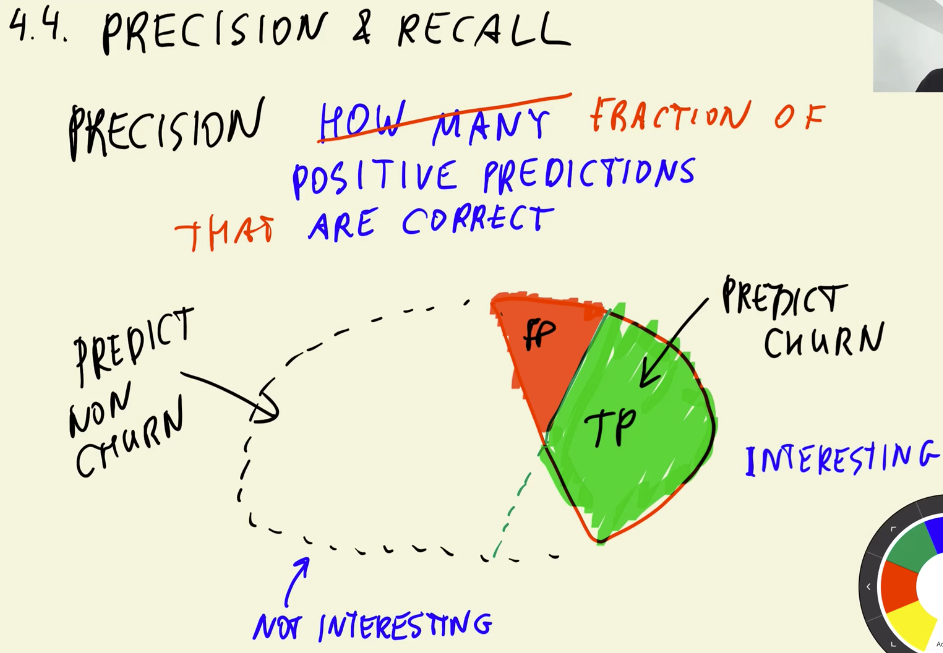 4.4. PRECISION & RECALL
PRECISION HOW MANY FRACTION OF
POSITIVE PREDICTIONS
THAT ARE CORRECT
FP
PREDICT
CHURN
PREDICT
NON
CHURN
TP
INTERESTING
NOT INTERESTING